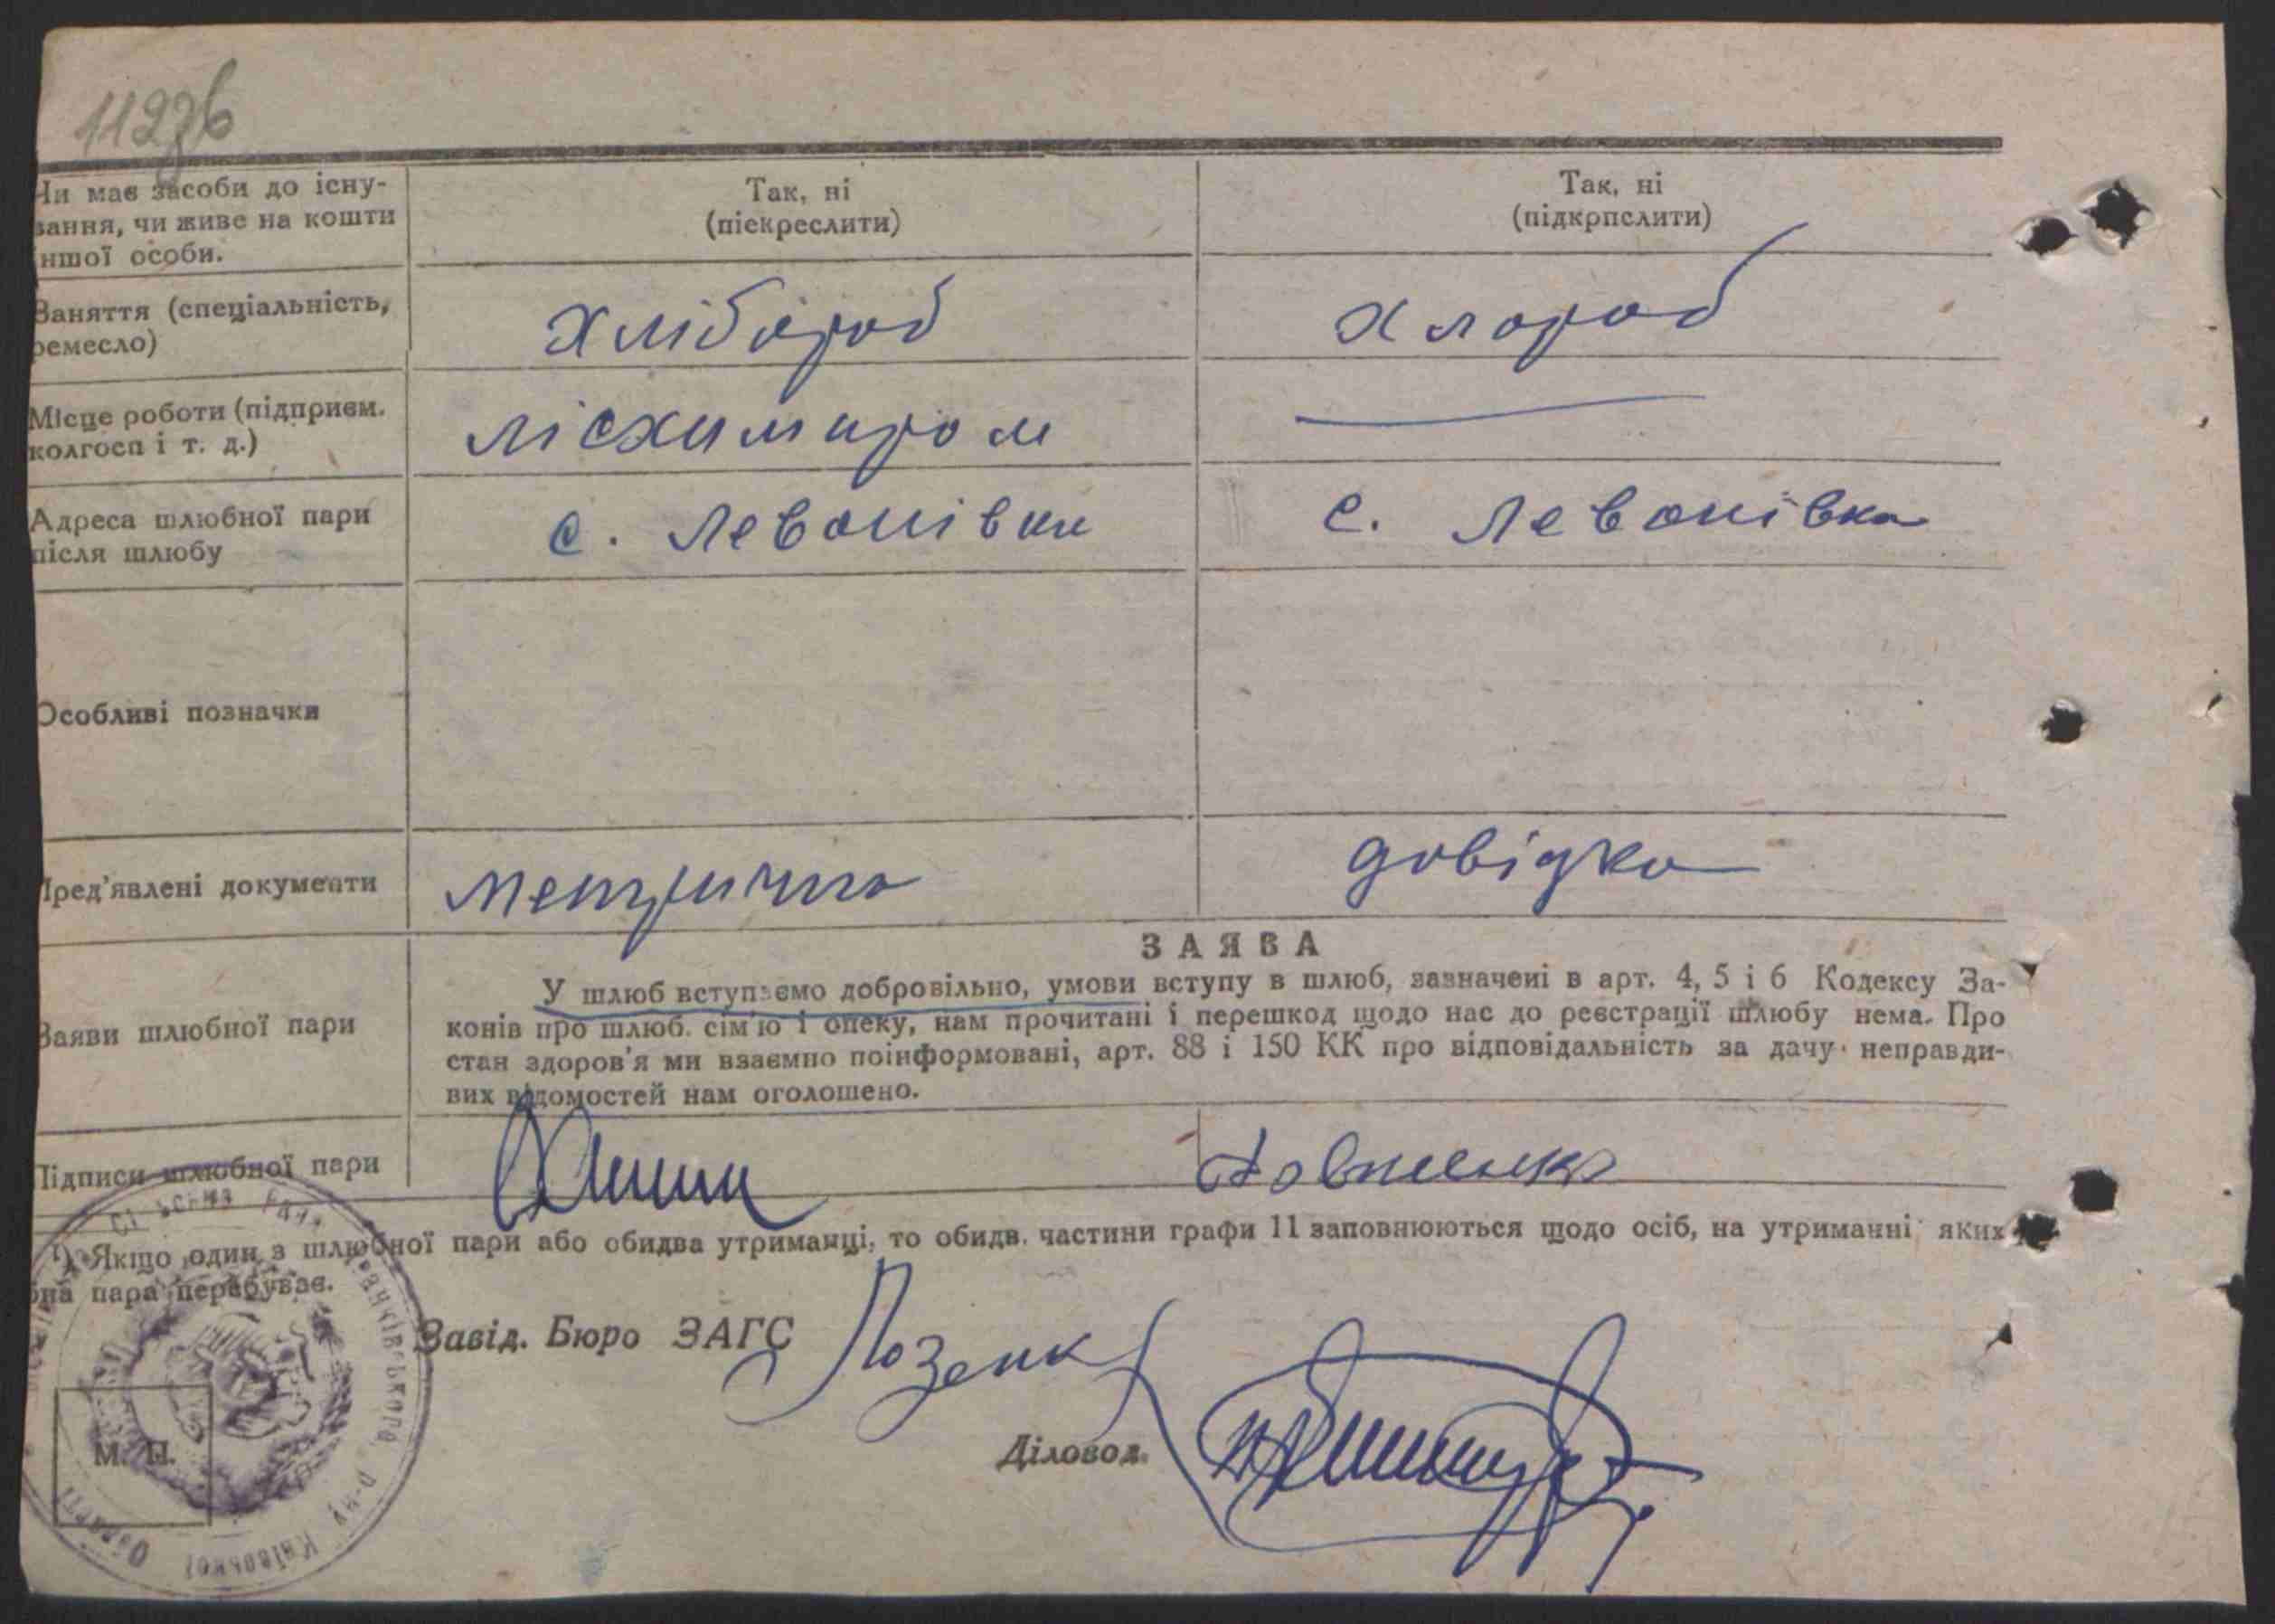 11236
Чи має засоби до існу-
вання, чи живе на кошти
іншої особи.
Так, ні
(піскреслити)
Так, ні
(підкрпслити)
Заняття (спеціальність,
ремесло)
Хлібороб
Хлороб
Місце роботи (підприєм.
колгосп і т. д.)
лісхимпром
Адреса шлюбної пари
після шлюбу
с. Левонівка
с. Левонівка
Особливі позначки
Пред'явлені документи
метрична
довідка
Заяви шлюбної пари
ЗАЯВА
У шлюб вступаємо добровільно, умови вступу в шлюб, зазначені в арт. 4, 5 і 6 Кодексу За-
конів про шлюб. сім'ю і опеку, нам прочитані і перешкод щодо нас до реєстрації шлюбу нема. Про
стан здоров'я ми взаємно поінформовані, арт. 88 і 150 КК про відповідальність за дачу неправди-
вих відомостей нам оголошено.
Підписи шлюбної пари
Довженко
¹) Якщо один з шлюбної пари або обидва утриманці, то обидв. частини графи 11 заповнюються щодо осіб, на утриманні яких
она пара перебуває.
Завід. Бюро ЗАГС
Лозенко
Діловод.
М. П.
Сільська Рада Іванківського р-ну Київської Області